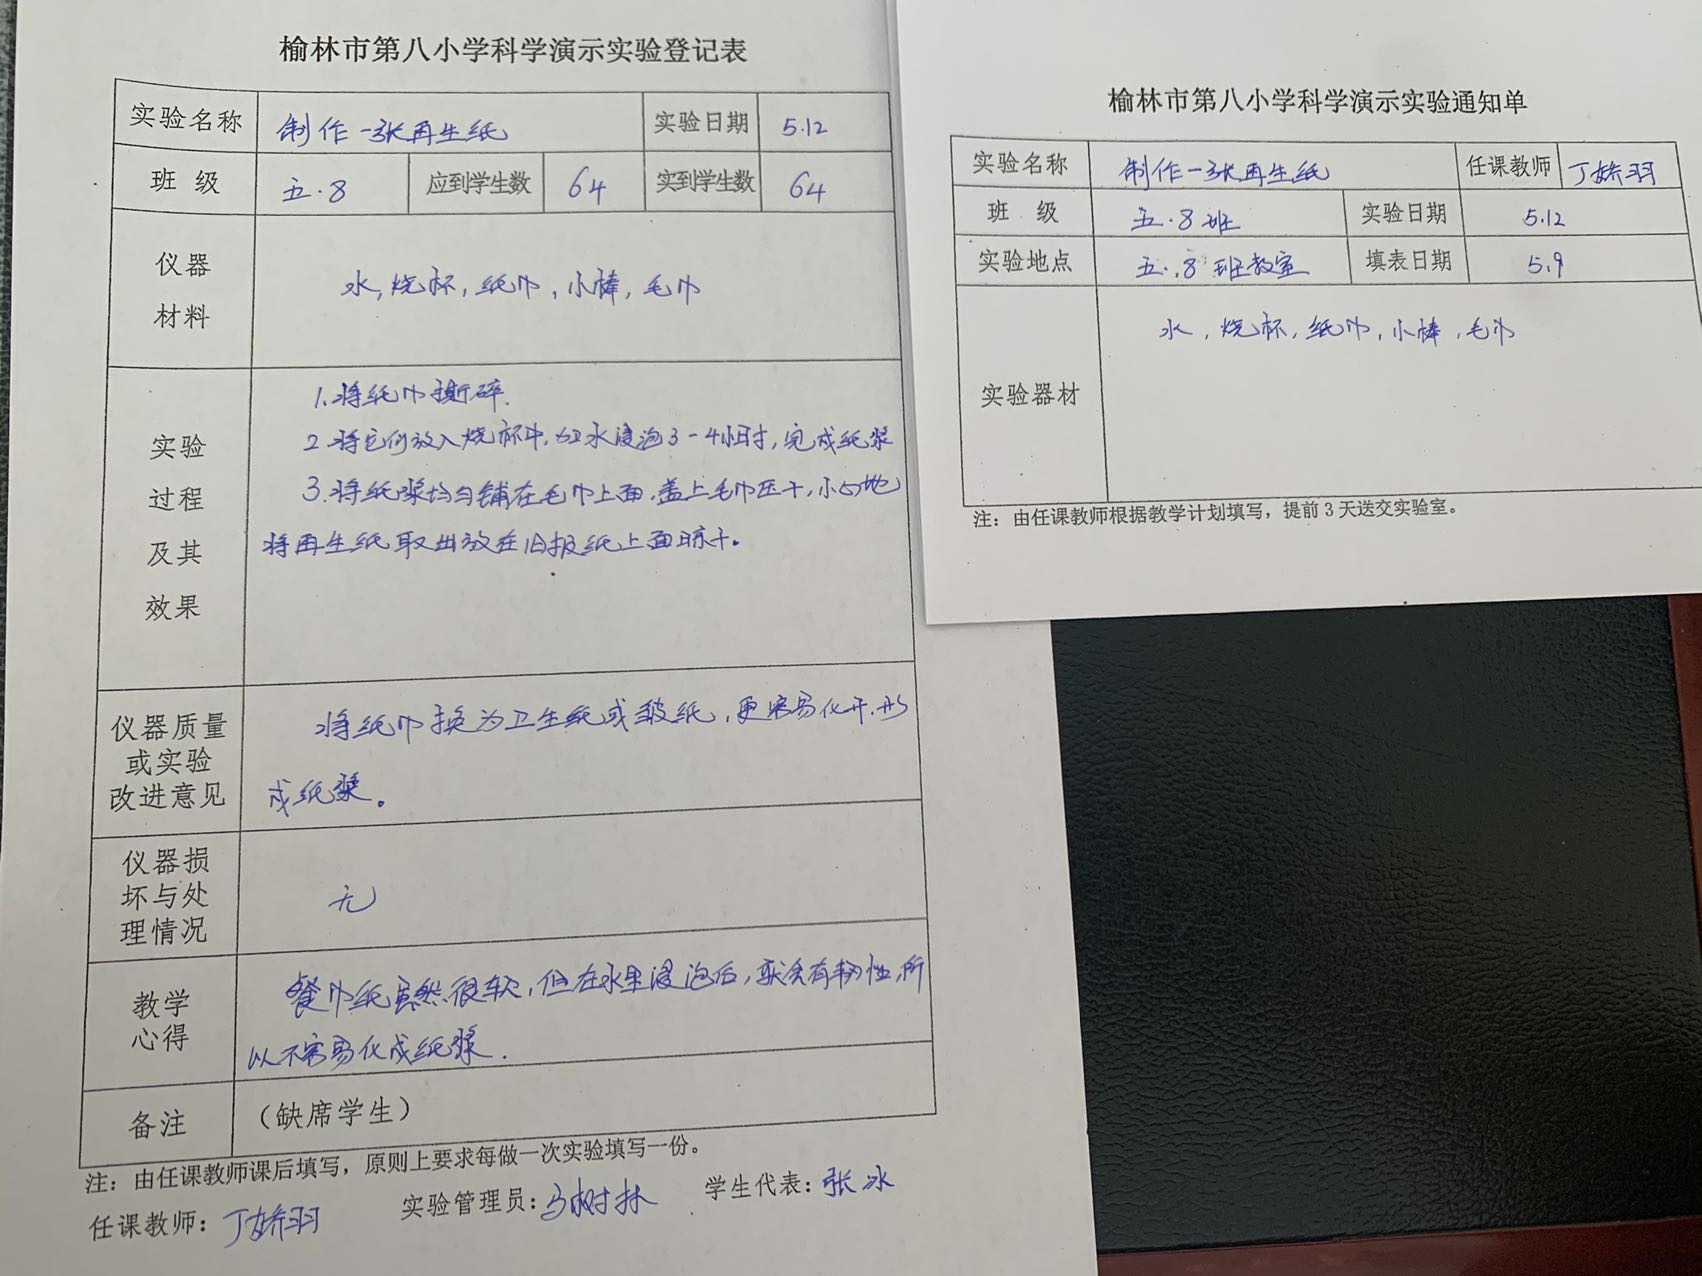 榆林市第八小学科学演示实验登记表
实验名称 制作一张再生纸 实验日期 5.12
班 级 五.8 应到学生数 64 实到学生数 64
仪器
材料
水,烧杯,纸巾,小棒,毛巾
实验
过程
及其
效果
1.将纸巾撕碎.
2.将它们放入烧杯中,加水浸泡3-4小时,完成纸浆
3.将纸浆均匀铺在毛巾上面,盖上毛巾压干,小心地
将再生纸取出放在旧报纸上面晾干。
仪器质量
或实验
改进意见
将纸巾换为卫生纸或皱纸,更容易化开,形
成纸浆。
仪器损
坏与处
理情况
无
教学
心得
餐巾纸虽然很软,但在水里浸泡后,就会有韧性,所
以不容易化成纸浆.
备注 (缺席学生)
注：由任课教师课后填写，原则上要求每做一次实验填写一份。
任课教师：丁娇羽 实验管理员：马树林 学生代表：张冰
榆林市第八小学科学演示实验通知单
实验名称 制作一张再生纸 任课教师 丁娇羽
班 级 五.8班 实验日期 5.12
实验地点 五.8班教室 填表日期 5.9
实验器材
水,烧杯,纸巾,小棒,毛巾
注：由任课教师根据教学计划填写，提前3天送交实验室。